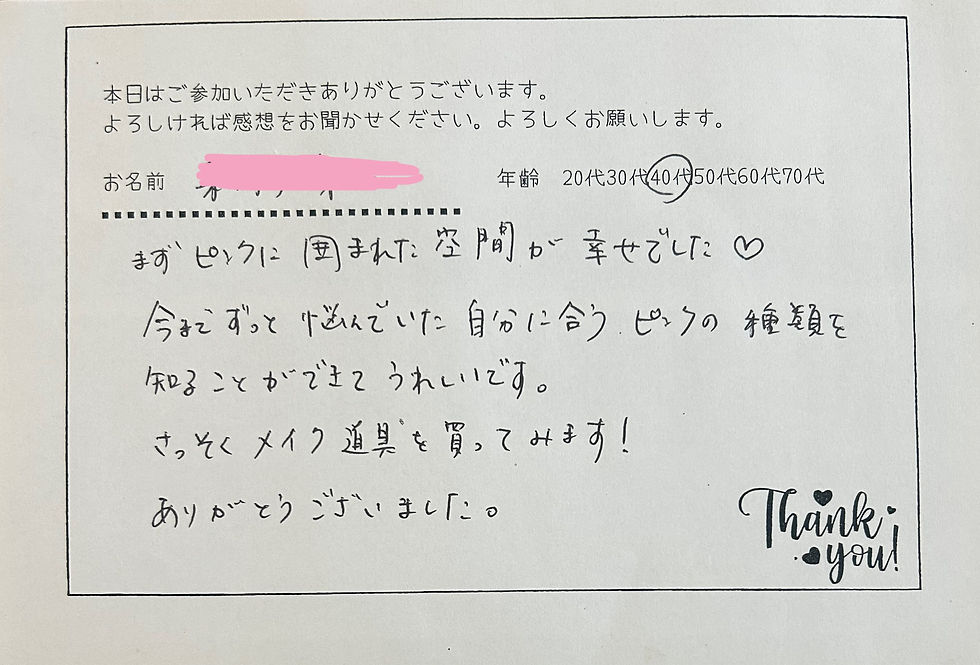 本日はご参加いただきありがとうございます。
よろしければ感想をお聞かせください。よろしくお願いします。
お名前
年齢 20代30代40代50代60代70代
まずピンクに囲まれた空間が幸せでした♡
今までずっと悩んでいた自分に合うピンクの種類を
知ることができてうれしいです。
さっそくメイク道具を買ってみます!
ありがとうございました。
Thank
you!